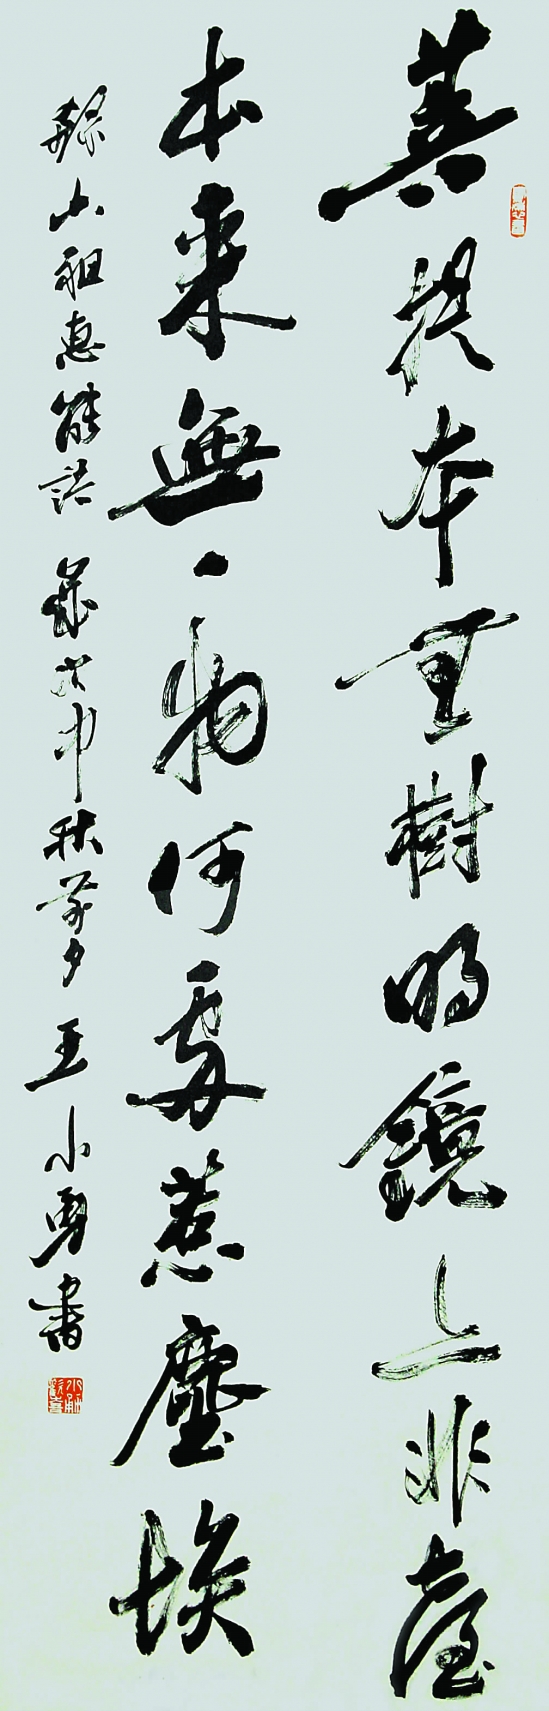 菩提本無樹明鏡亦非臺
本來無一物何處惹塵埃
録六祖惠能語 歲次中秋前夕 王小勇書